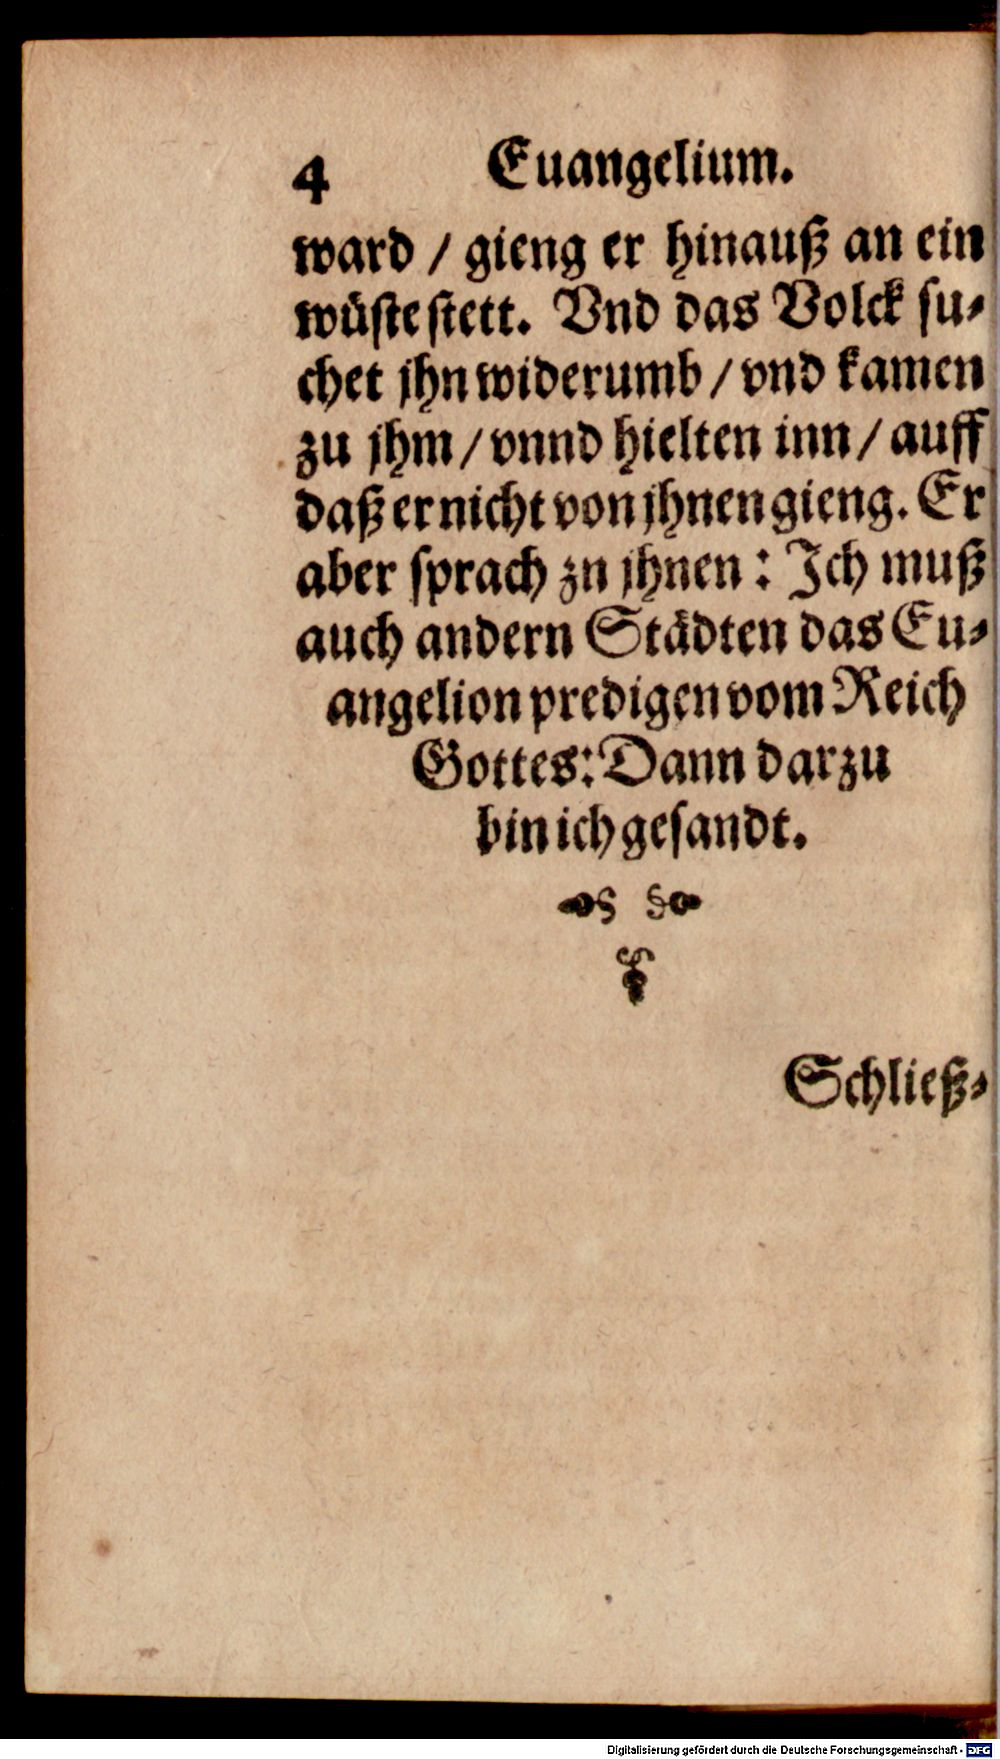 4 Euangelium.
ward / gieng er hinauß an ein
wüste stett. Vnd das Volck su-
chet jhn widerumb / vnd kamen
zu jhm / vnnd hielten inn / auff
daß er nicht von jhnen gieng. Er
aber sprach zn jhnen : Jch muß
auch andern Städten das Eu-
angelion predigen vom Reich
Gottes: Dann darzu
bin ich gesandt.
Schließ-
Digitalisierung gefördert durch die Deutsche Forschungsgemeinschaft - DFG